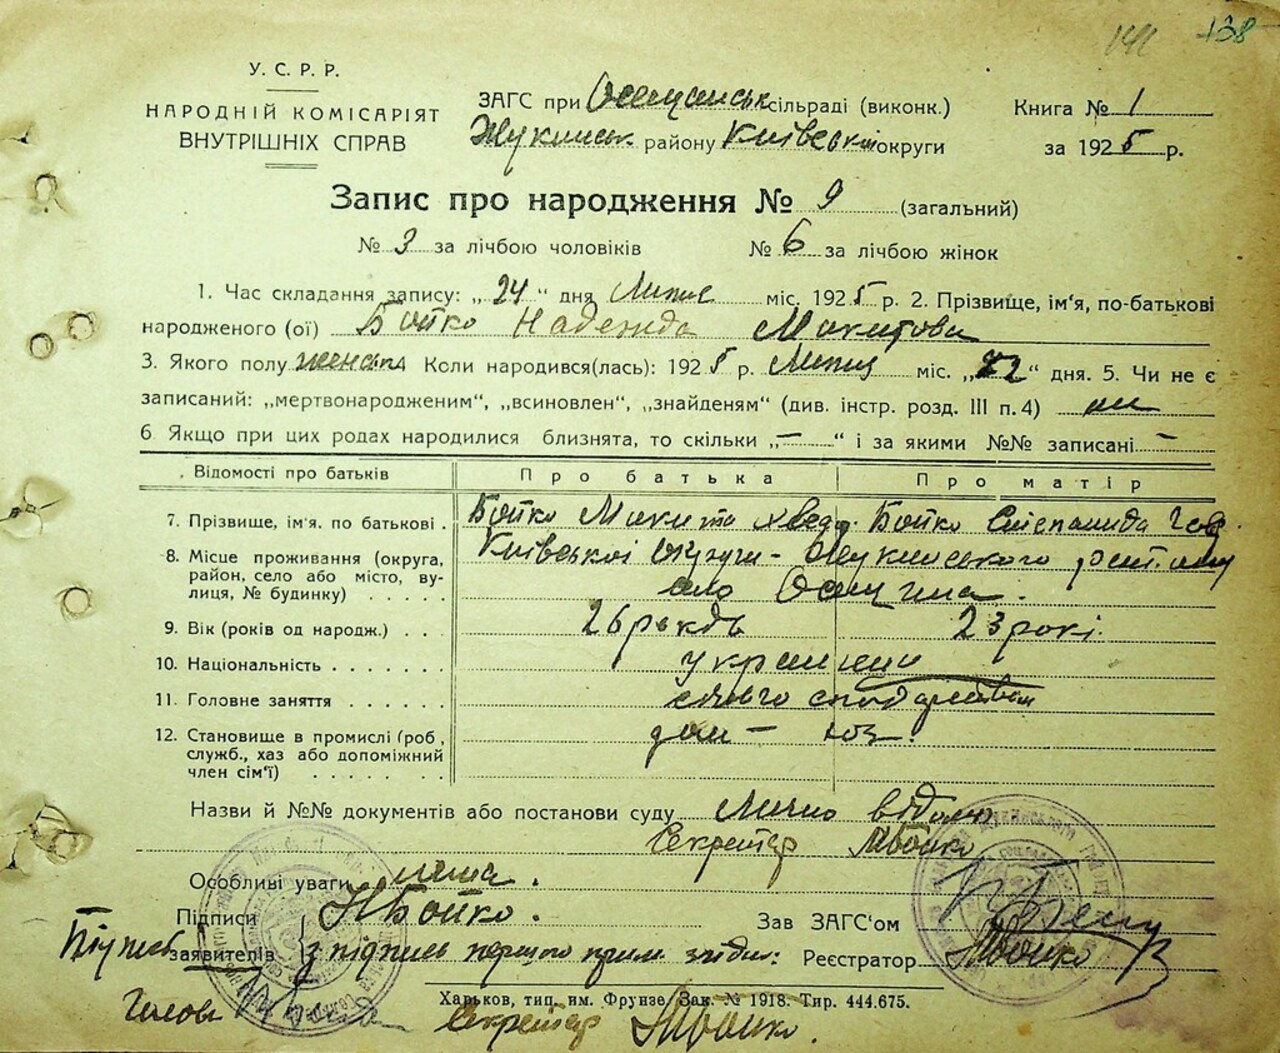 141 138
У.С.Р.Р.
НАРОДНІЙ КОМІСАРІЯТ
ВНУТРІШНІХ СПРАВ
ЗАГС при Осещинськ сільраді (виконк.)
Жукинськ району Київської округи
Книга № 1
за 1925 р.
Запис про народження № 9 (загальний)
№ 3 за лічбою чоловіків № 6 за лічбою жінок
1. Час складання запису: „24“ дня Липня міс. 1925 р. 2. Прізвище, ім'я, по-батькові
народженого (ої) Бойко Надежда Микитова
3. Якого полу женськ 4 Коли народився(лась): 1925 р. Липня міс. „22“ дня. 5. Чи не є
записаний: „мертвонародженим“, „всиновлен“, „знайденям“ (див. інстр. розд. III п. 4) ні
6 Якщо при цих родах народилися близнята, то скільки „—“ і за якими №№ записані —
Відомості про батьків Про батька Про матір
7. Прізвище, ім'я. по батькові . Бойко Микита Хвед. Бойко Степанида
8. Місце проживання (округа, район, село або місто, вулиця, № будинку) . . . . . Київської округи - Жукинського району
село Осещина.
9. Вік (років од народж.) . . . 26 років 23 рокі.
10. Національність . . . . . . . українці
11. Головне заняття . . . . . . сільського господарства
12. Становище в промислі (роб, служб., хаз або допоміжний член сім'ї) . . . . . . . дом —
Назви й №№ документів або постанови суду Лично відомі
Секретар МБойко
Особливі уваги нема.
Підписи заявителів НБойко.
Зав ЗАГС'ом
Підпись з підпись першого прим. згідно: Реєстратор МБойко
Харьков, тип. им. Фрунзе. Зак. № 1918. Тир. 444.675.
Голова Секретар МБойко.